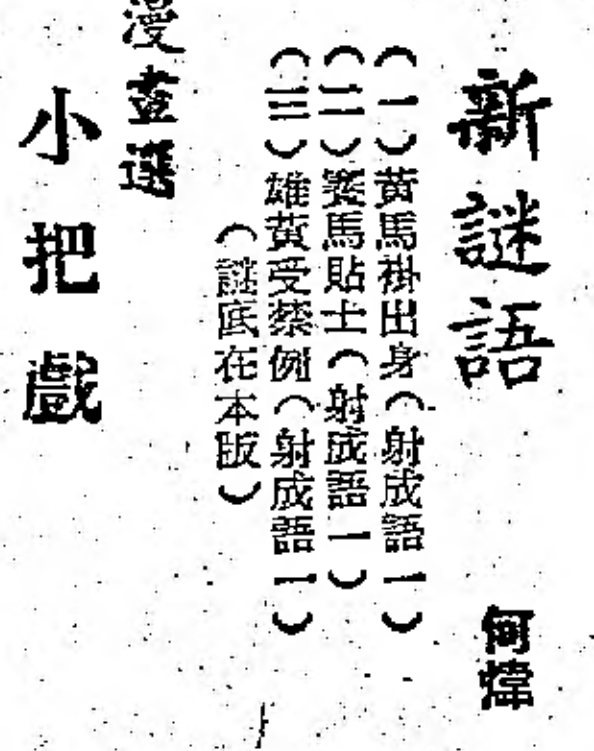 新謎語
何煒
(一)黃馬褂出身(射成語一)
(二)賽馬貼士(射成語一)
(三)雄黃受禁例(射成語一)
(謎底在本版)
漫畫選
小把戲